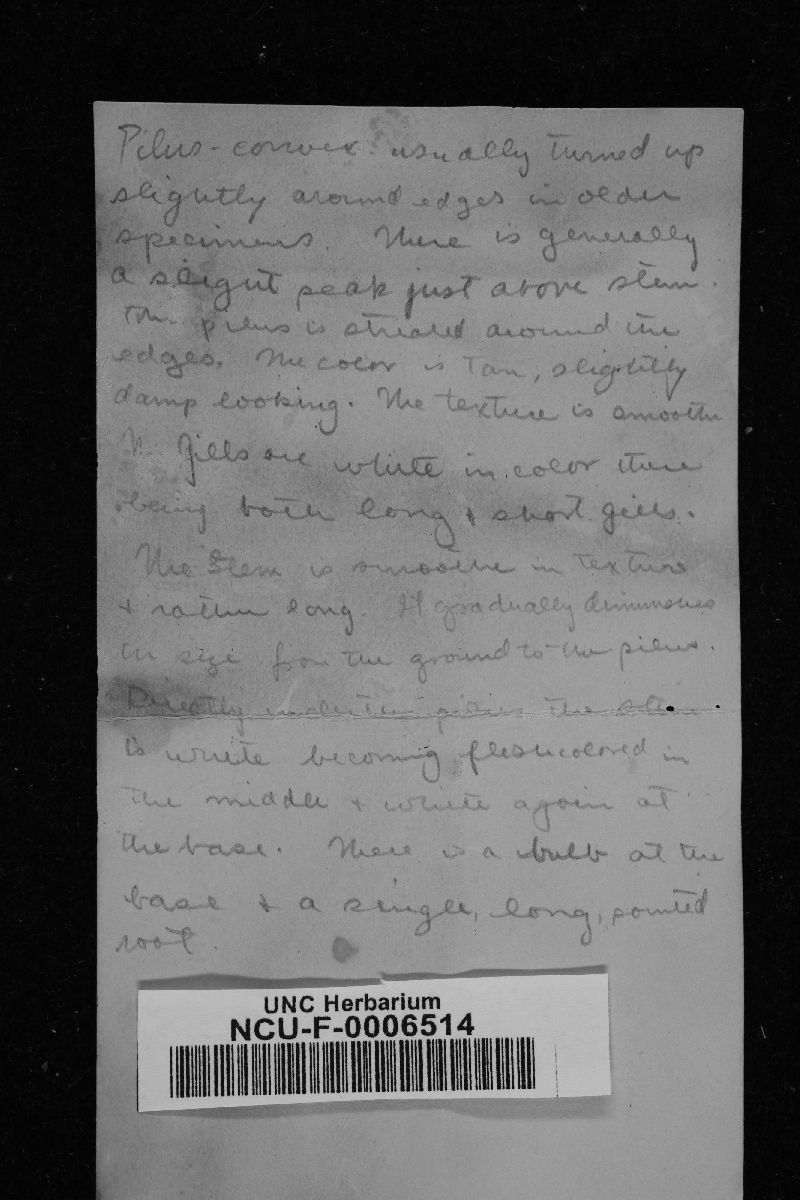 Pilus - convex usually turned up
slightly around edges in older
specimens. There is generally
a slight peak just above stem.
The pilus is striated around the
edges. The color is Tan, slightly
damp looking. The texture is smoothe
Gills are white in color there
being both long & short gills.
The Stem is smoothe in texture
& rather long. It gradually diminishes
in size from the ground to the pileus.
Directly under the pileus the stem
is white becoming fleshcolored in
the middle & white again at
the base. There is a bulb at the
base & a single, long, pointed
root.
UNC Herbarium
NCU-F-0006514